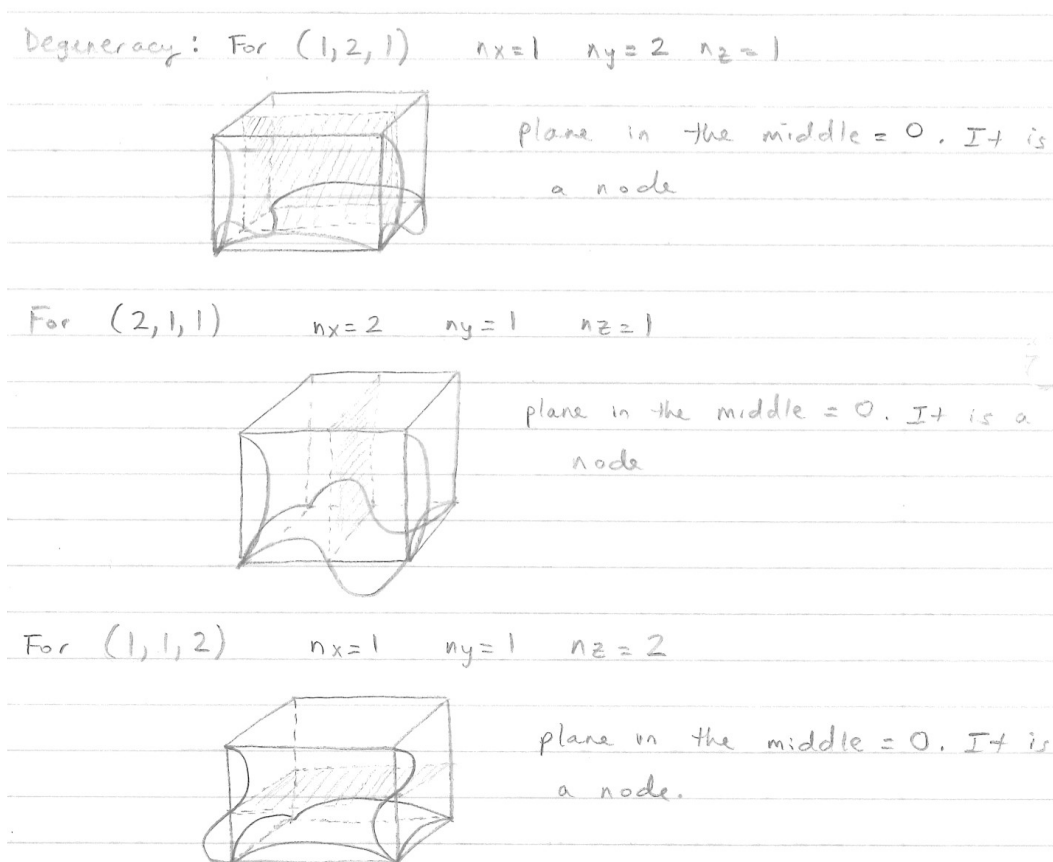 Degeneracy: For (1,2,1) nx=1 ny=2 nz=1
plane in the middle = 0. It is
a node
For (2,1,1) nx=2 ny=1 nz=1
plane in the middle = 0. It is a
node
For (1,1,2) nx=1 ny=1 nz=2
plane in the middle = 0. It is
a node.